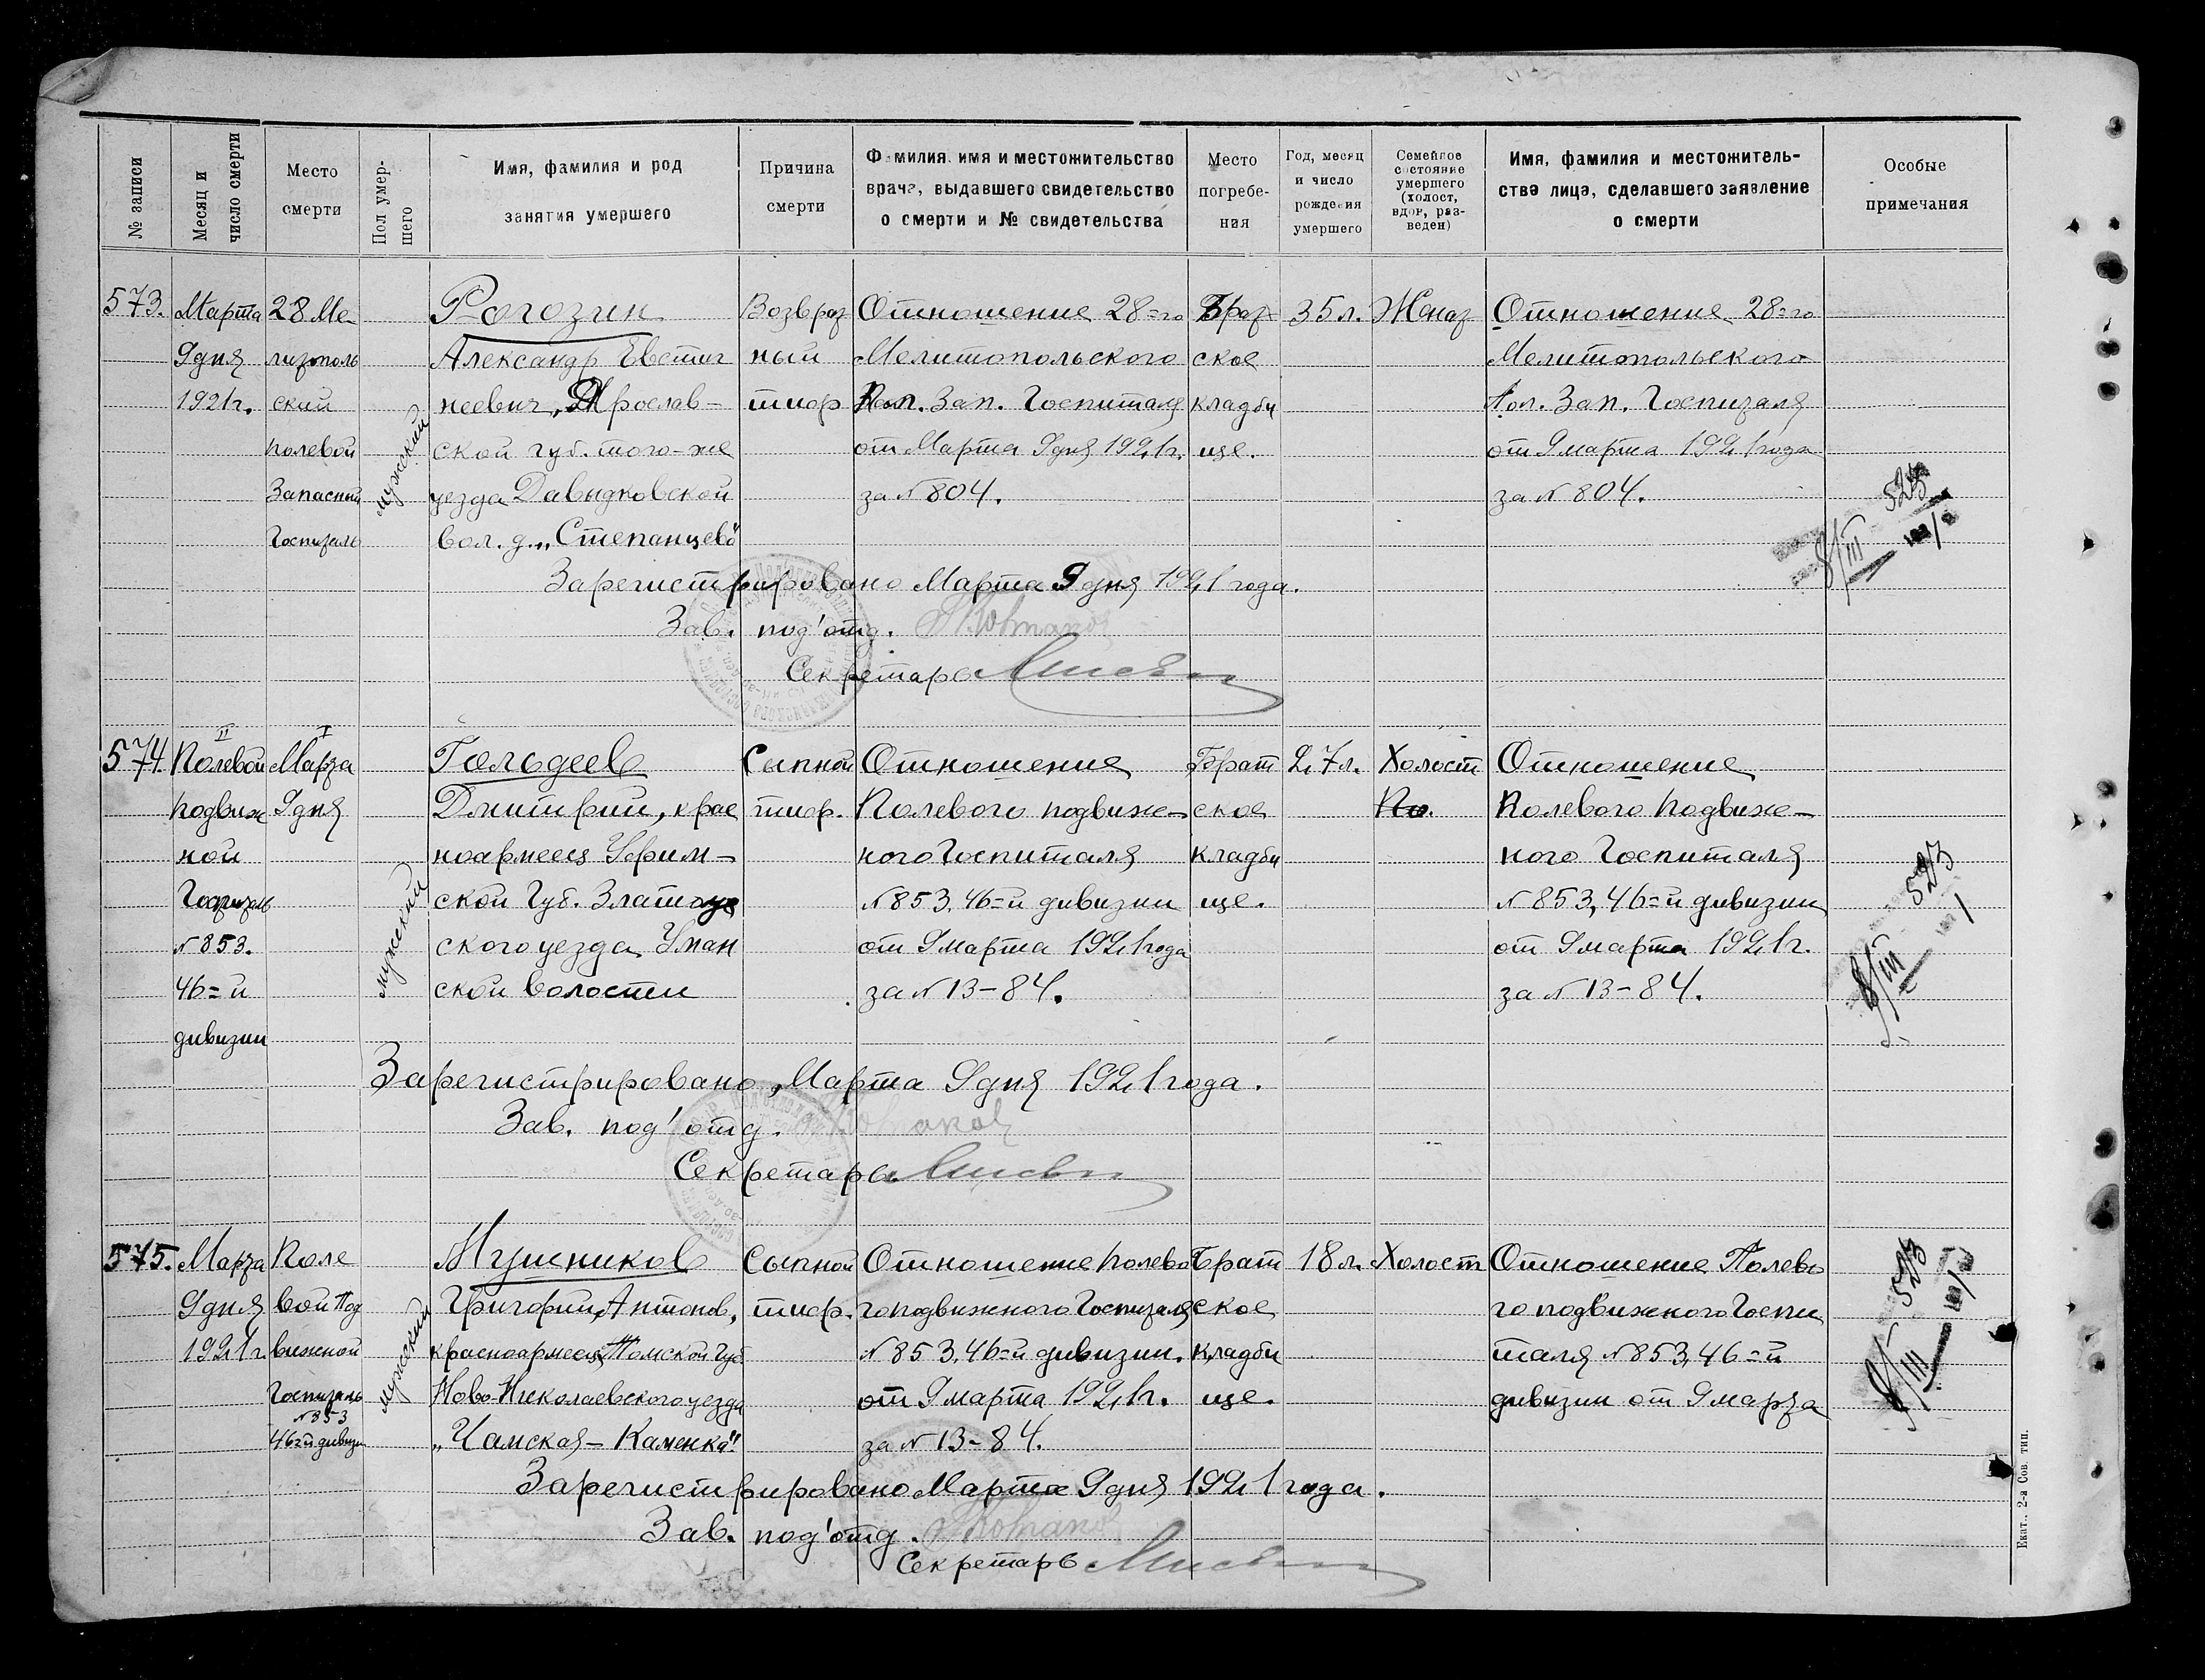 № записи
Месяц и
число смерти
Место
смерти
Пол умер-
шего
Имя, фамилия и род
занятия умершего
Причина
смерти
Фамилия, имя и местожительство
врача, выдавшего свидетельство
о смерти и № свидетельства
Место
погребе-
ния
Год, месяц
и число
рождения
умершего
Семейное
состояние
умершего
(холост,
вдов, раз-
веден)
Имя, фамилия и местожитель-
ство лица, сделавшего заявление
о смерти
Особые
примечания
573.
Марта
9 дня
1921 г.
28 Ме
литополь
ский
полевой
Запасный
Госпиталь
мужской
Рогозин
Александр Евстиг
неевич, Ярослав-
ской губ. того-же
уезда Давыдковской
вол. д. „Степанцево"
Возврат
ный
тиф
Отношение 28=го
Мелитопольского
Пол. Зап. Госпиталя
от Марта 9 дня 1921 г.
за № 804.
Брат
ское
кладби
ще.
35 л.
Женат
Отношение 28=го
Мелитопольского
Пол. Зап. Госпиталя
от 9 марта 1921 года
за № 804.
Зарегистрировано Марта 9 дня 1921 года.
Зав. под'отд.
Секретарь
574.
II
Полевой
подвиж
ной
Госпиталь
№ 853.
46=й
дивизии
I
Марта
9 дня
мужской
Гольдеев
Дмитрий, крас
ноармеец Уфим-
ской Губ. Златоус
ского уезда Уман
ской волости
Сыпной
тиф.
Отношение
Полевого подвиж-
ного Госпиталя
№ 853, 46=й дивизии
от 9 марта 1921 года
за № 13-84.
Брат
ское
кладби
ще.
27 л.
Холост
Отношение
Полевого подвиж-
ного Госпиталя
№ 853, 46=й дивизии
от 9 марта 1921 г.
за № 13-84.
Зарегистрировано, Марта 9 дня 1921 года.
Зав. под'отд.
Секретарь
575.
Марта
9 дня
1921 г.
Поле
вой Под
вижной
Госпиталь
№ 853
46=й дивизи
мужской
Мушников
Григорий, Антонов,
красноармеец Томской Губ
Ново-Николаевского уезда
„Чамская-Каменка"
Сыпной
тиф.
Отношение полево
го подвижного Госпиталя
№ 853, 46=й дивизии.
от 9 марта 1921 г.
за № 13-84.
Брат
ское
кладби
ще.
18 л.
Холост
Отношение Полево
го подвижного Госпи
таля № 853, 46=й
дивизии от 9 марта
Зарегистрировано Марта 9 дня 1921 года.
Зав. под'отд.
Секретарь
Екат., 2-а Сов. тип.